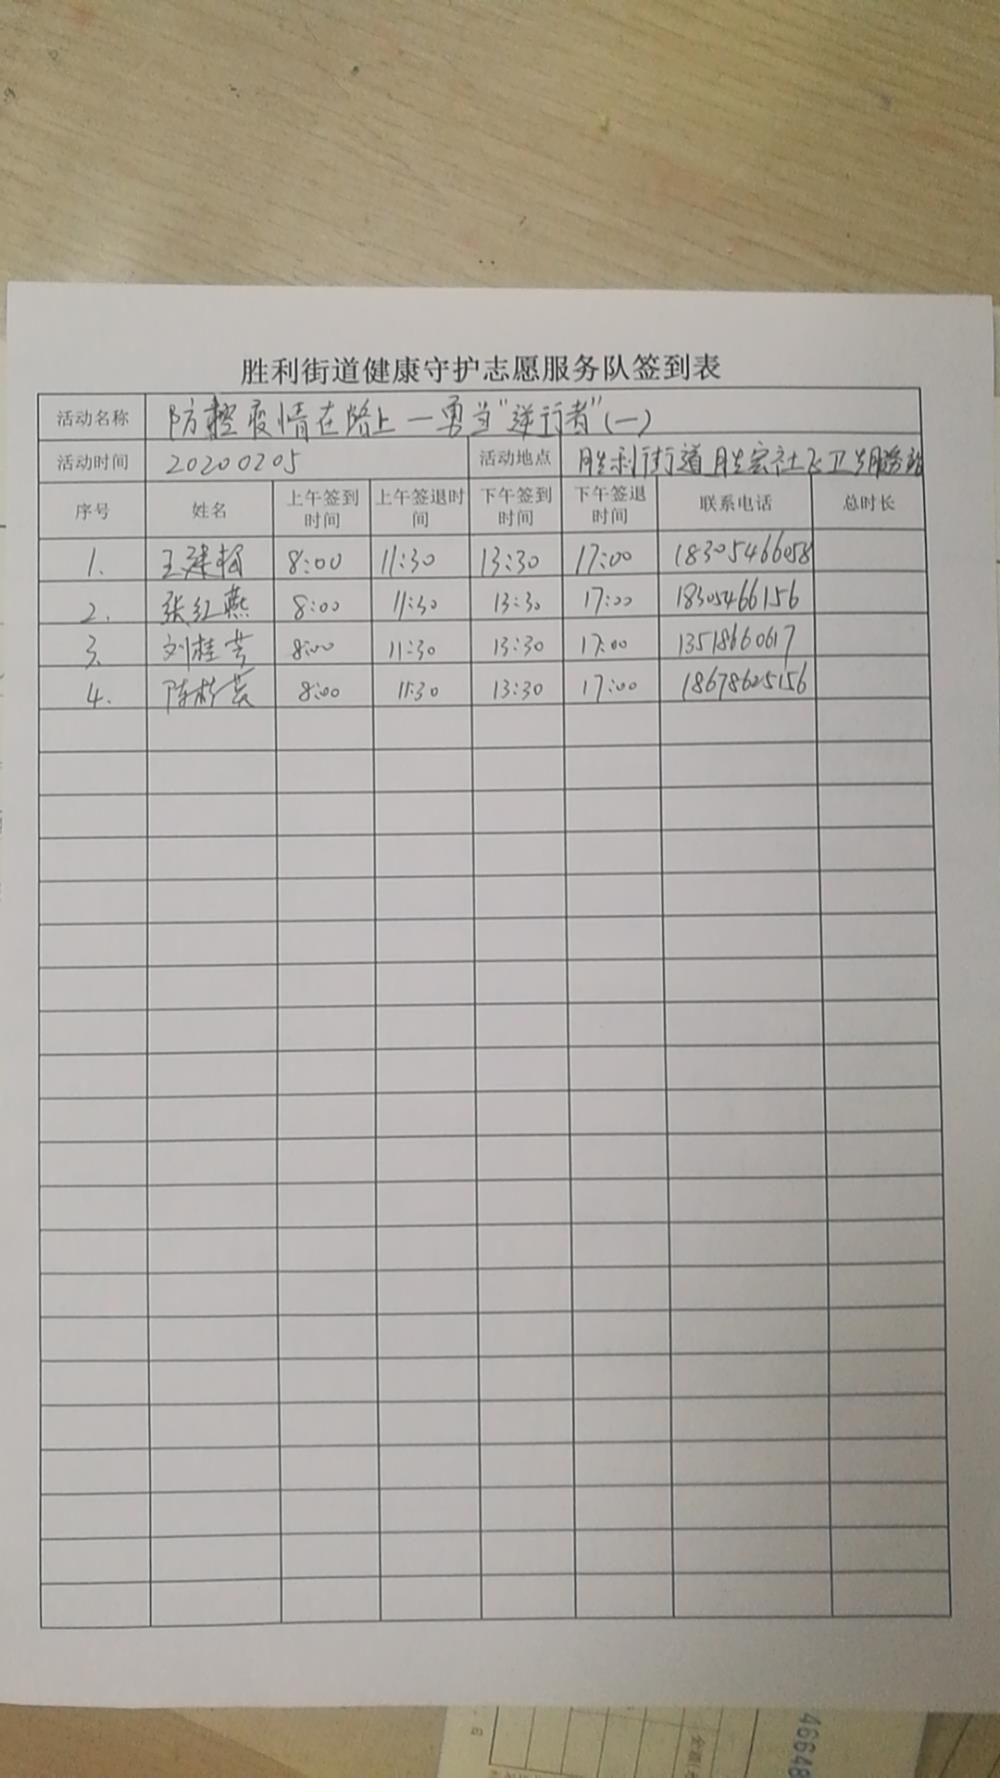 胜利街道健康守护志愿服务队签到表
活动名称 防控疫情在路上一勇当“逆行者”(一)
活动时间 20200205 活动地点 胜利街道胜宏社区卫生服务站
序号 姓名 上午签到时间 上午签退时间 下午签到时间 下午签退时间 联系电话 总时长
1. 王建 8:00 11:30 13:30 17:00 18305466058
2. 张红燕 8:00 11:30 13:30 17:00 18305466156
3. 刘桂芳 8:00 11:30 13:30 17:00 13518660617
4. 陈 8:00 11:30 13:30 17:00 18678625156
46648